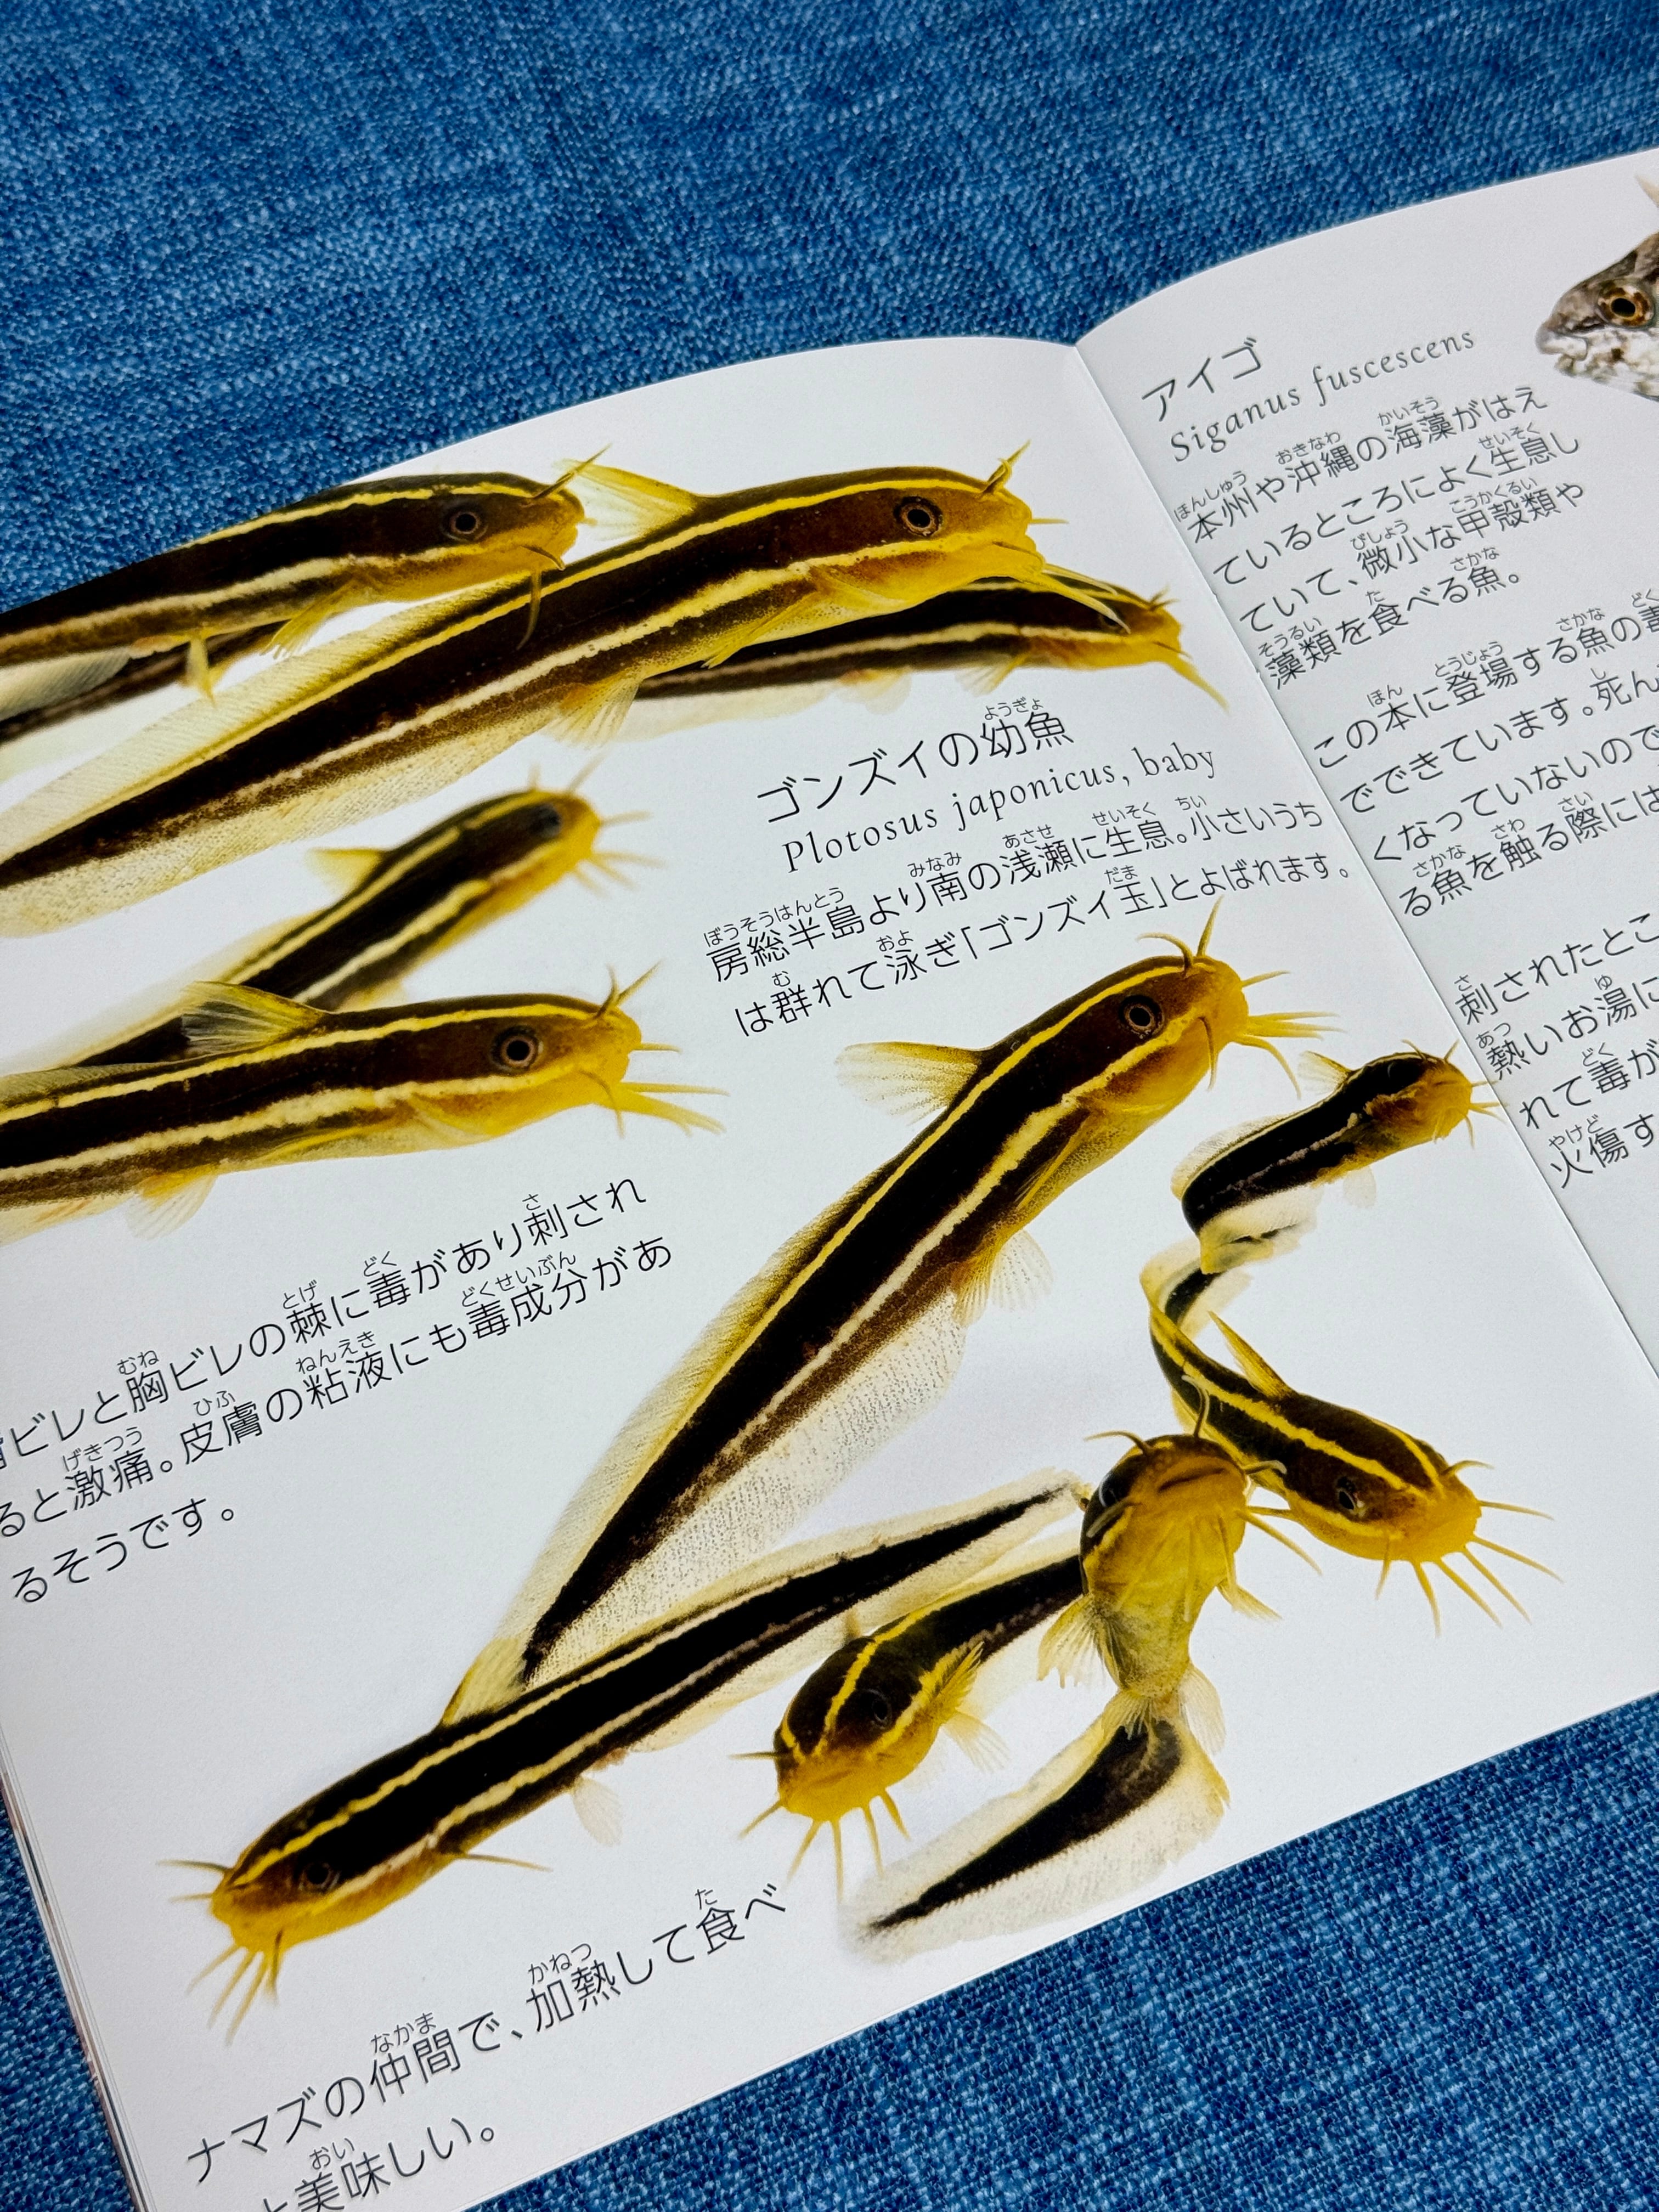 ゴンズイの幼魚
Plotosus japonicus, baby
房総半島より南の浅瀬に生息。小さいうち
は群れて泳ぎ「ゴンズイ玉」とよばれます。
ビレと胸ビレの棘に毒があり刺され
ると激痛。皮膚の粘液にも毒成分があ
るそうです。
ナマズの仲間で、加熱して食べ
と美味しい。
アイゴ
Siganus fuscescens
本州や沖縄の海藻がはえ
ているところによく生息し
ていて、微小な甲殻類や
藻類を食べる魚。
この本に登場する魚の毒
でできています。死ん
くなっていないので
る魚を触る際には
刺されたとこ
熱いお湯に
れて毒が
火傷す